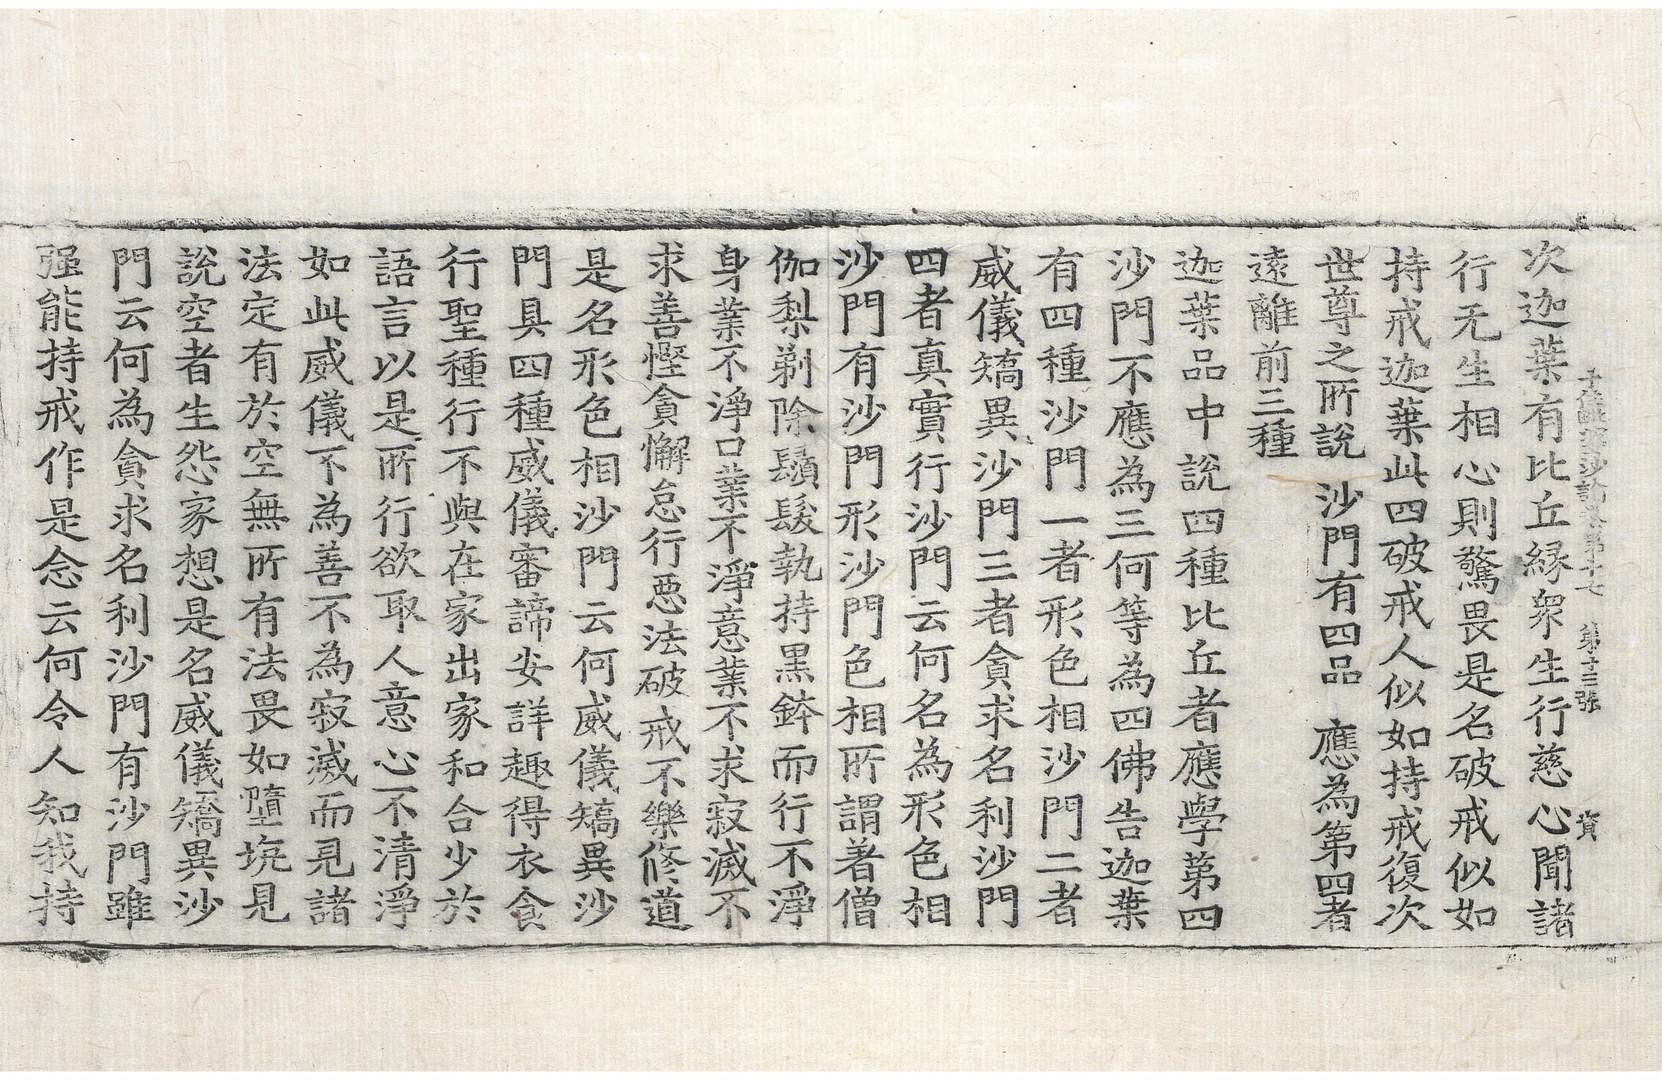 十住毗婆沙論卷第十七　第十三張　資
次迦葉有比丘緣衆生行慈心聞諸
行无生相心則驚畏是名破戒似如
持戒迦葉此四破戒人似如持戒復次
世尊之所說　沙門有四品　應為第四者
遠離前三種
迦葉品中說四種比丘者應學第四
沙門不應為三何等為四佛告迦葉
有四種沙門一者形色相沙門二者
威儀矯異沙門三者貪求名利沙門
四者真實行沙門云何名為形色相
沙門有沙門形沙門色相所謂著僧
伽梨剃除鬚髮執持黑鉢而行不淨
身業不淨口業不淨意業不求寂滅不
求善慳貪懈怠行惡法破戒不樂修道
是名形色相沙門云何威儀矯異沙
門具四種威儀審諦安詳趣得衣食
行聖種行不與在家出家和合少於
語言以是所行欲取人意心不清淨
如此威儀不為善不為寂滅而見諸
法定有於空無所有法畏如墮坑見
說空者生怨家想是名威儀矯異沙
門云何為貪求名利沙門有沙門雖
强能持戒作是念云何令人知我持